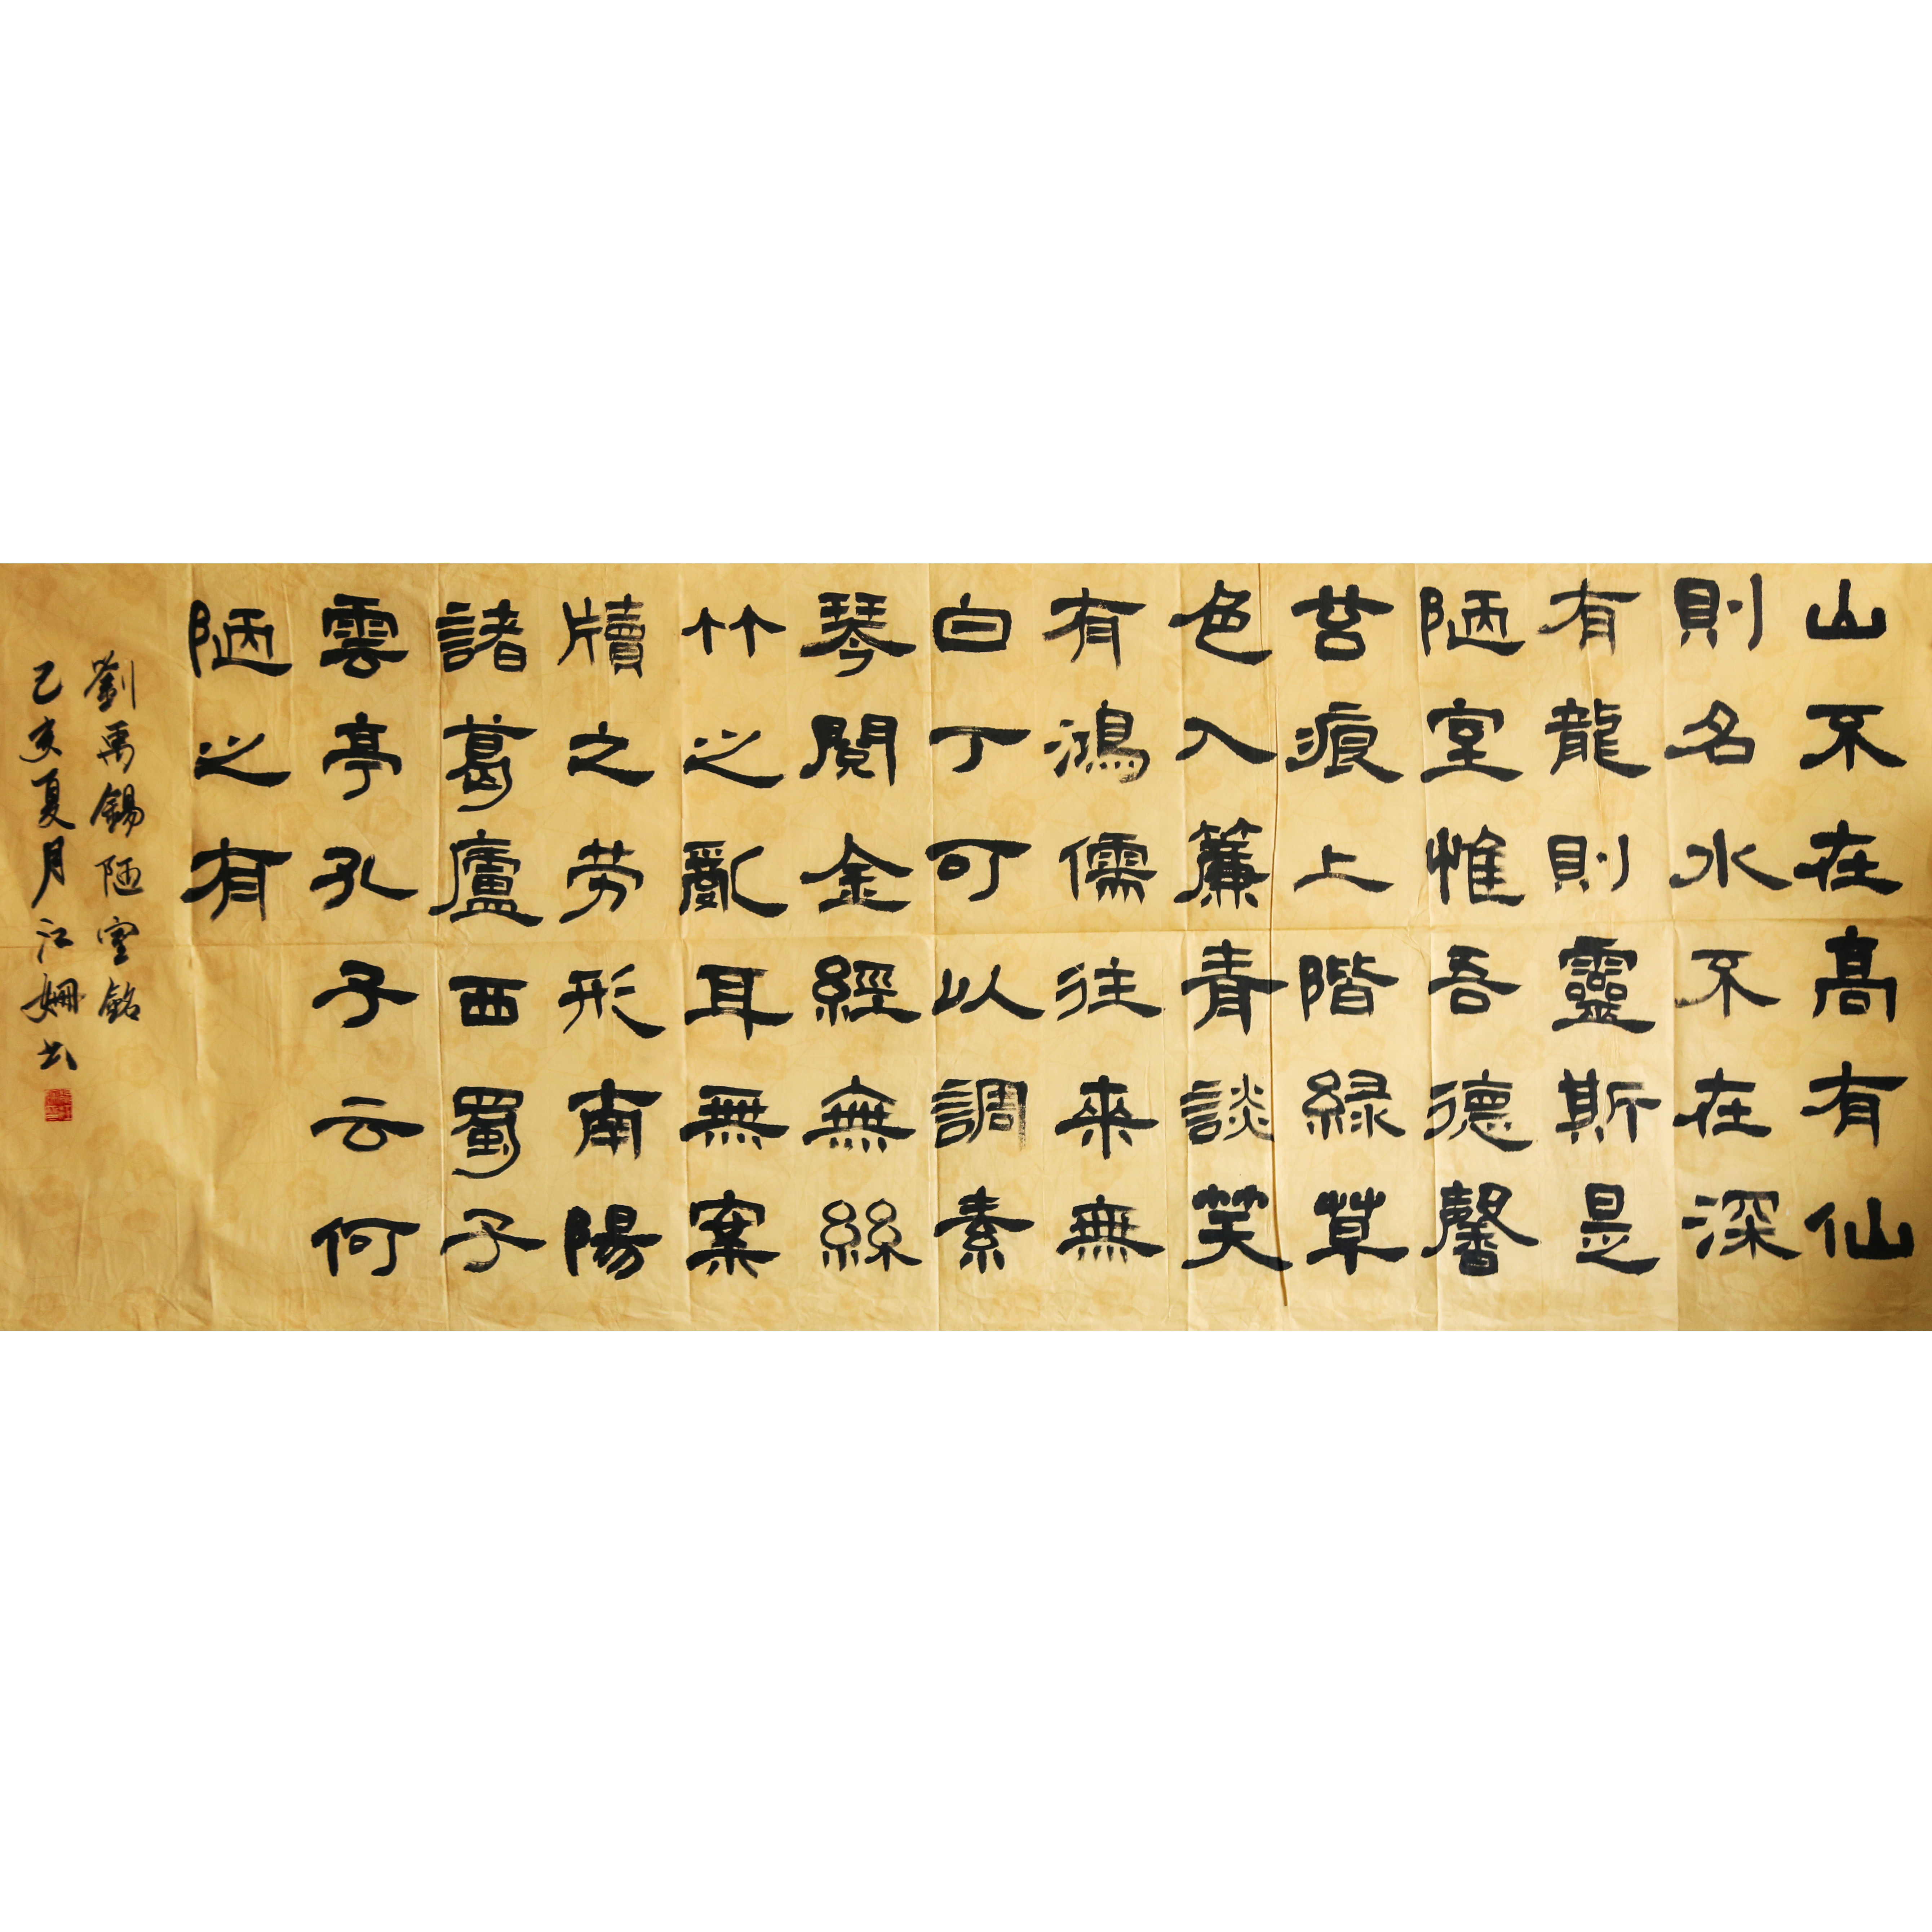 山不在高有仙
則名水不在深
有龍則靈斯是
陋室惟吾德馨
苔痕上階緑草
色入簾青談笑
有鴻儒往来無
白丁可以調素
琴閱金經無絲
竹之亂耳無案
牘之劳形南陽
諸葛廬西蜀子
雲亭孔子云何
陋之有
劉禹錫陋室銘
己亥夏月江姍书